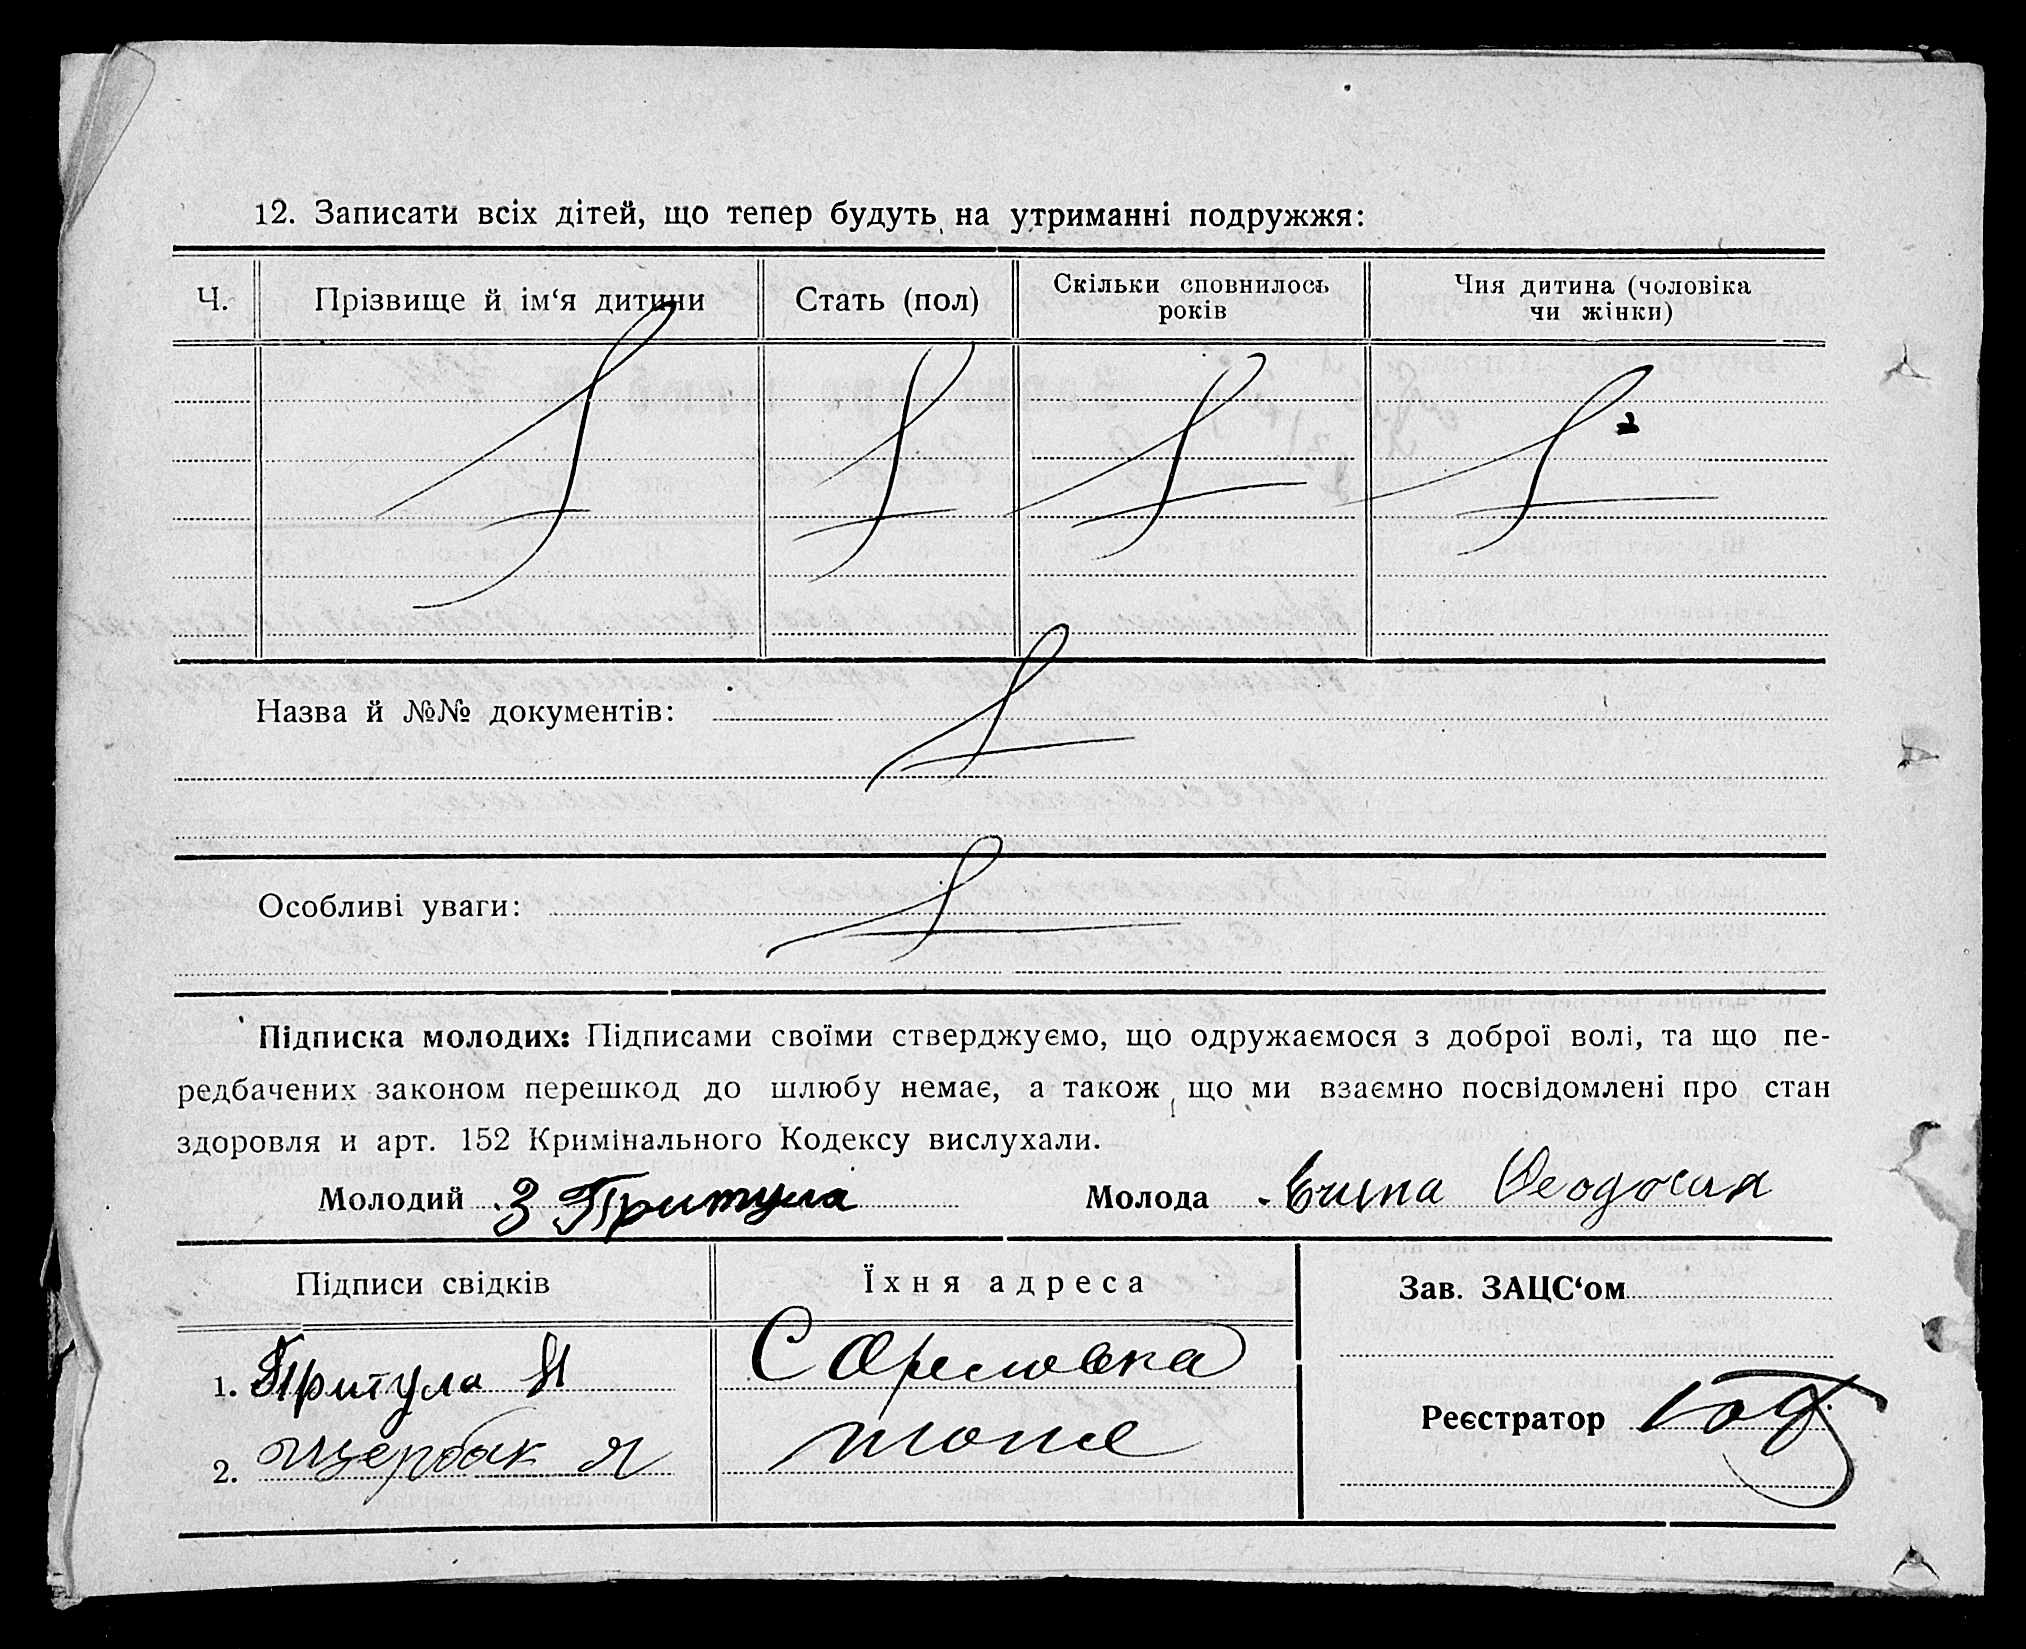 12. Записати всіх дітей, що тепер будуть на утриманні подружжя:
Ч.
Прізвище й ім‘я дитини
Стать (пол)
Скільки сповнилось
років
Чия дитина (чоловіка
чи жінки)
Назва й №№ документів:
Особливі уваги:
Підписка молодих: Підписами своїми стверджуємо, що одружаємося з доброї волі, та що пе-
редбачених законом перешкод до шлюбу немає, а також що ми взаємно посвідомлені про стан
здоровля и арт. 152 Кримінального Кодексу вислухали.
Молодий З Притула
Молода Феодосия
Підписи свідків
Їхня адреса
1. Притула Н
С
2. Щербак Я
тоже
Зав. ЗАЦС‘ом
Реєстратор